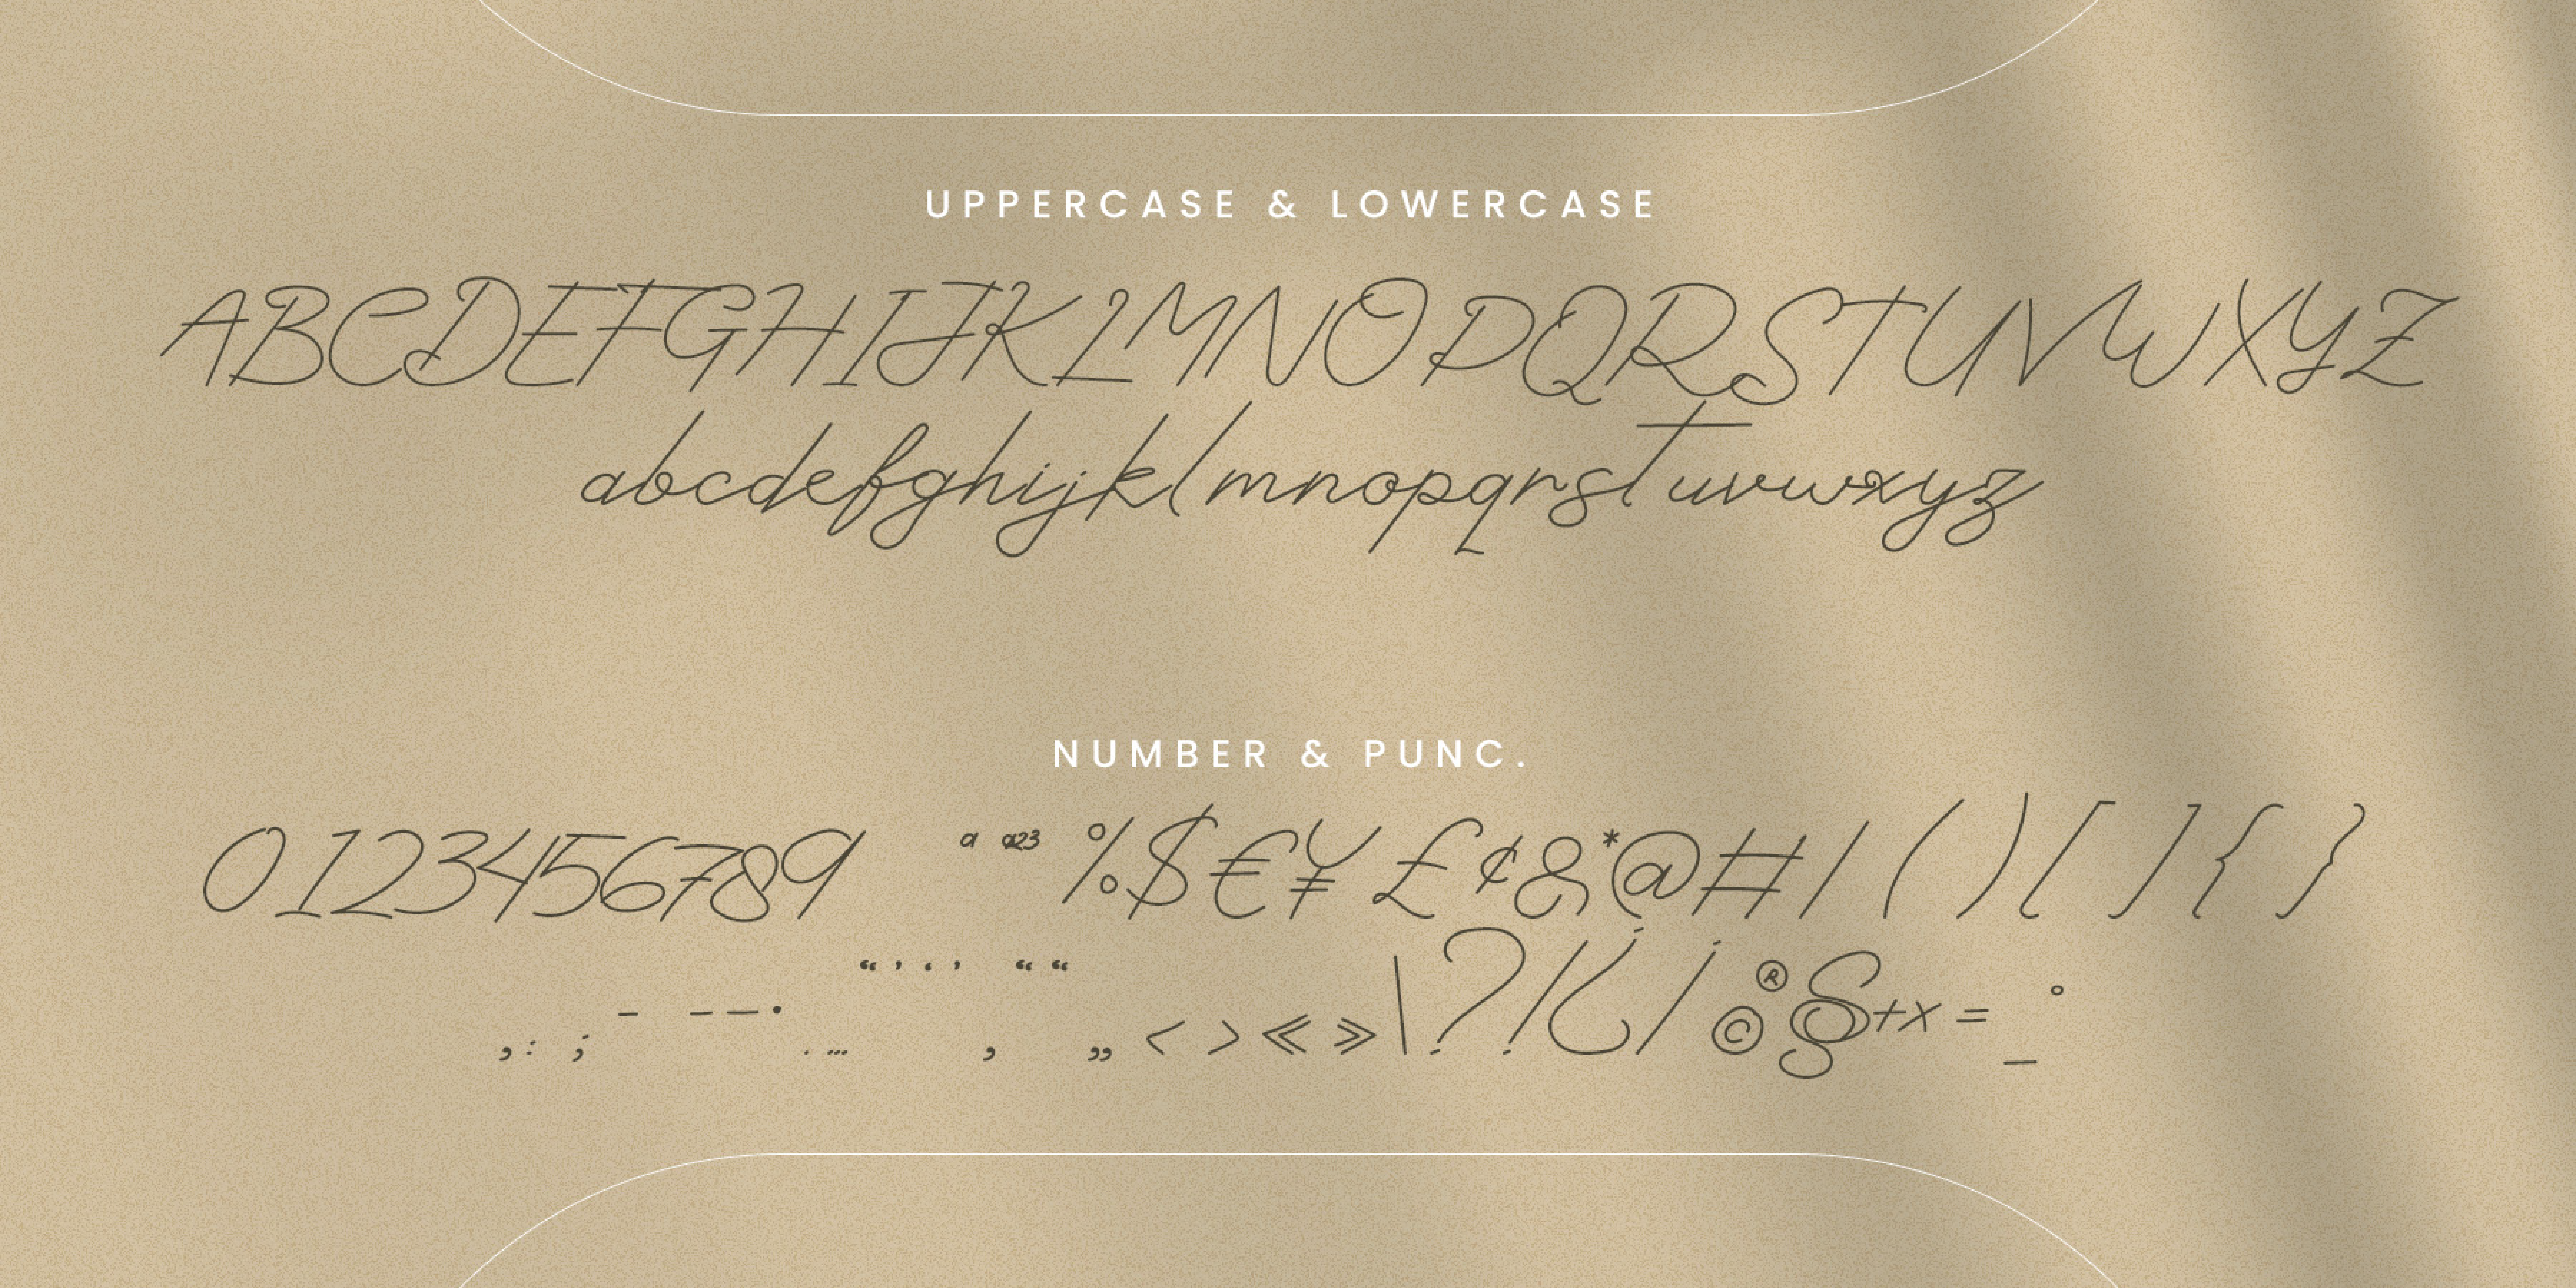 UPPERCASE & LOWERCASE
ABCDEFGHIJKLMNOPQRSTUVWXYZ
abcdefghijklmnopqrstuvwxyz
NUMBER & PUNC.
0123456789 a a23 %$€¥£¢&*@#/()[]{}
,:;-–—•.…“’‘’‚““„<>«»\?!¿¡®©§+×=_°